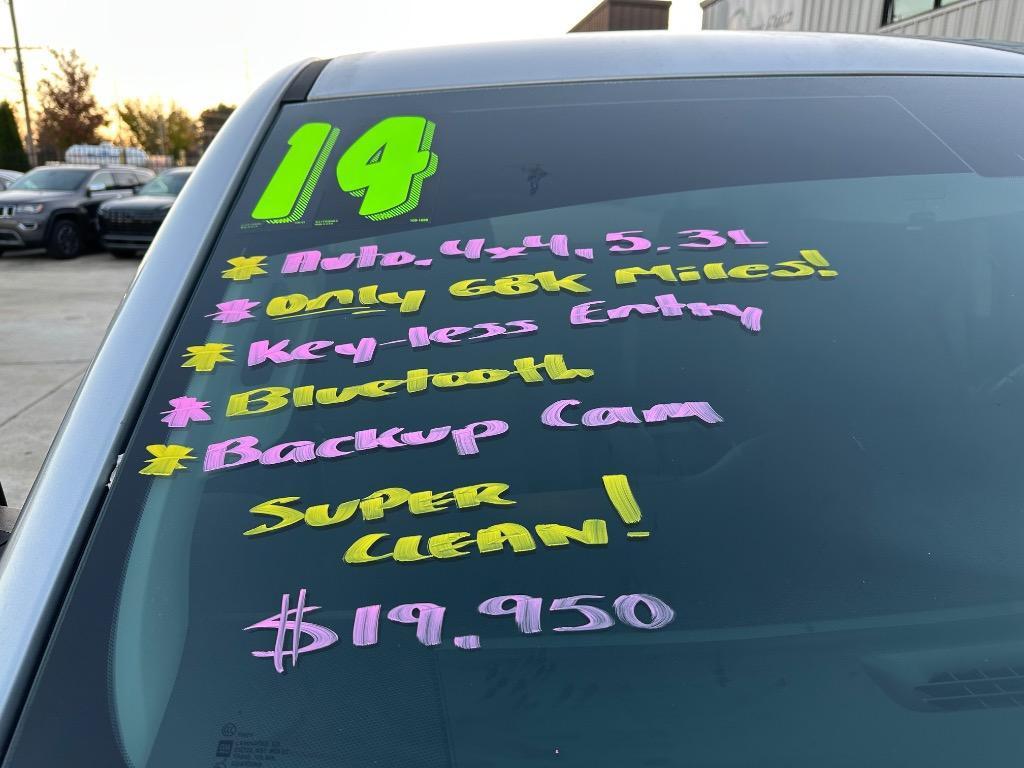 14
* Auto. 4x4, 5.3L
* Only 68K Miles!
* Key-less Entry
* Bluetooth
* Backup Cam
SUPER
CLEAN!
$19,950